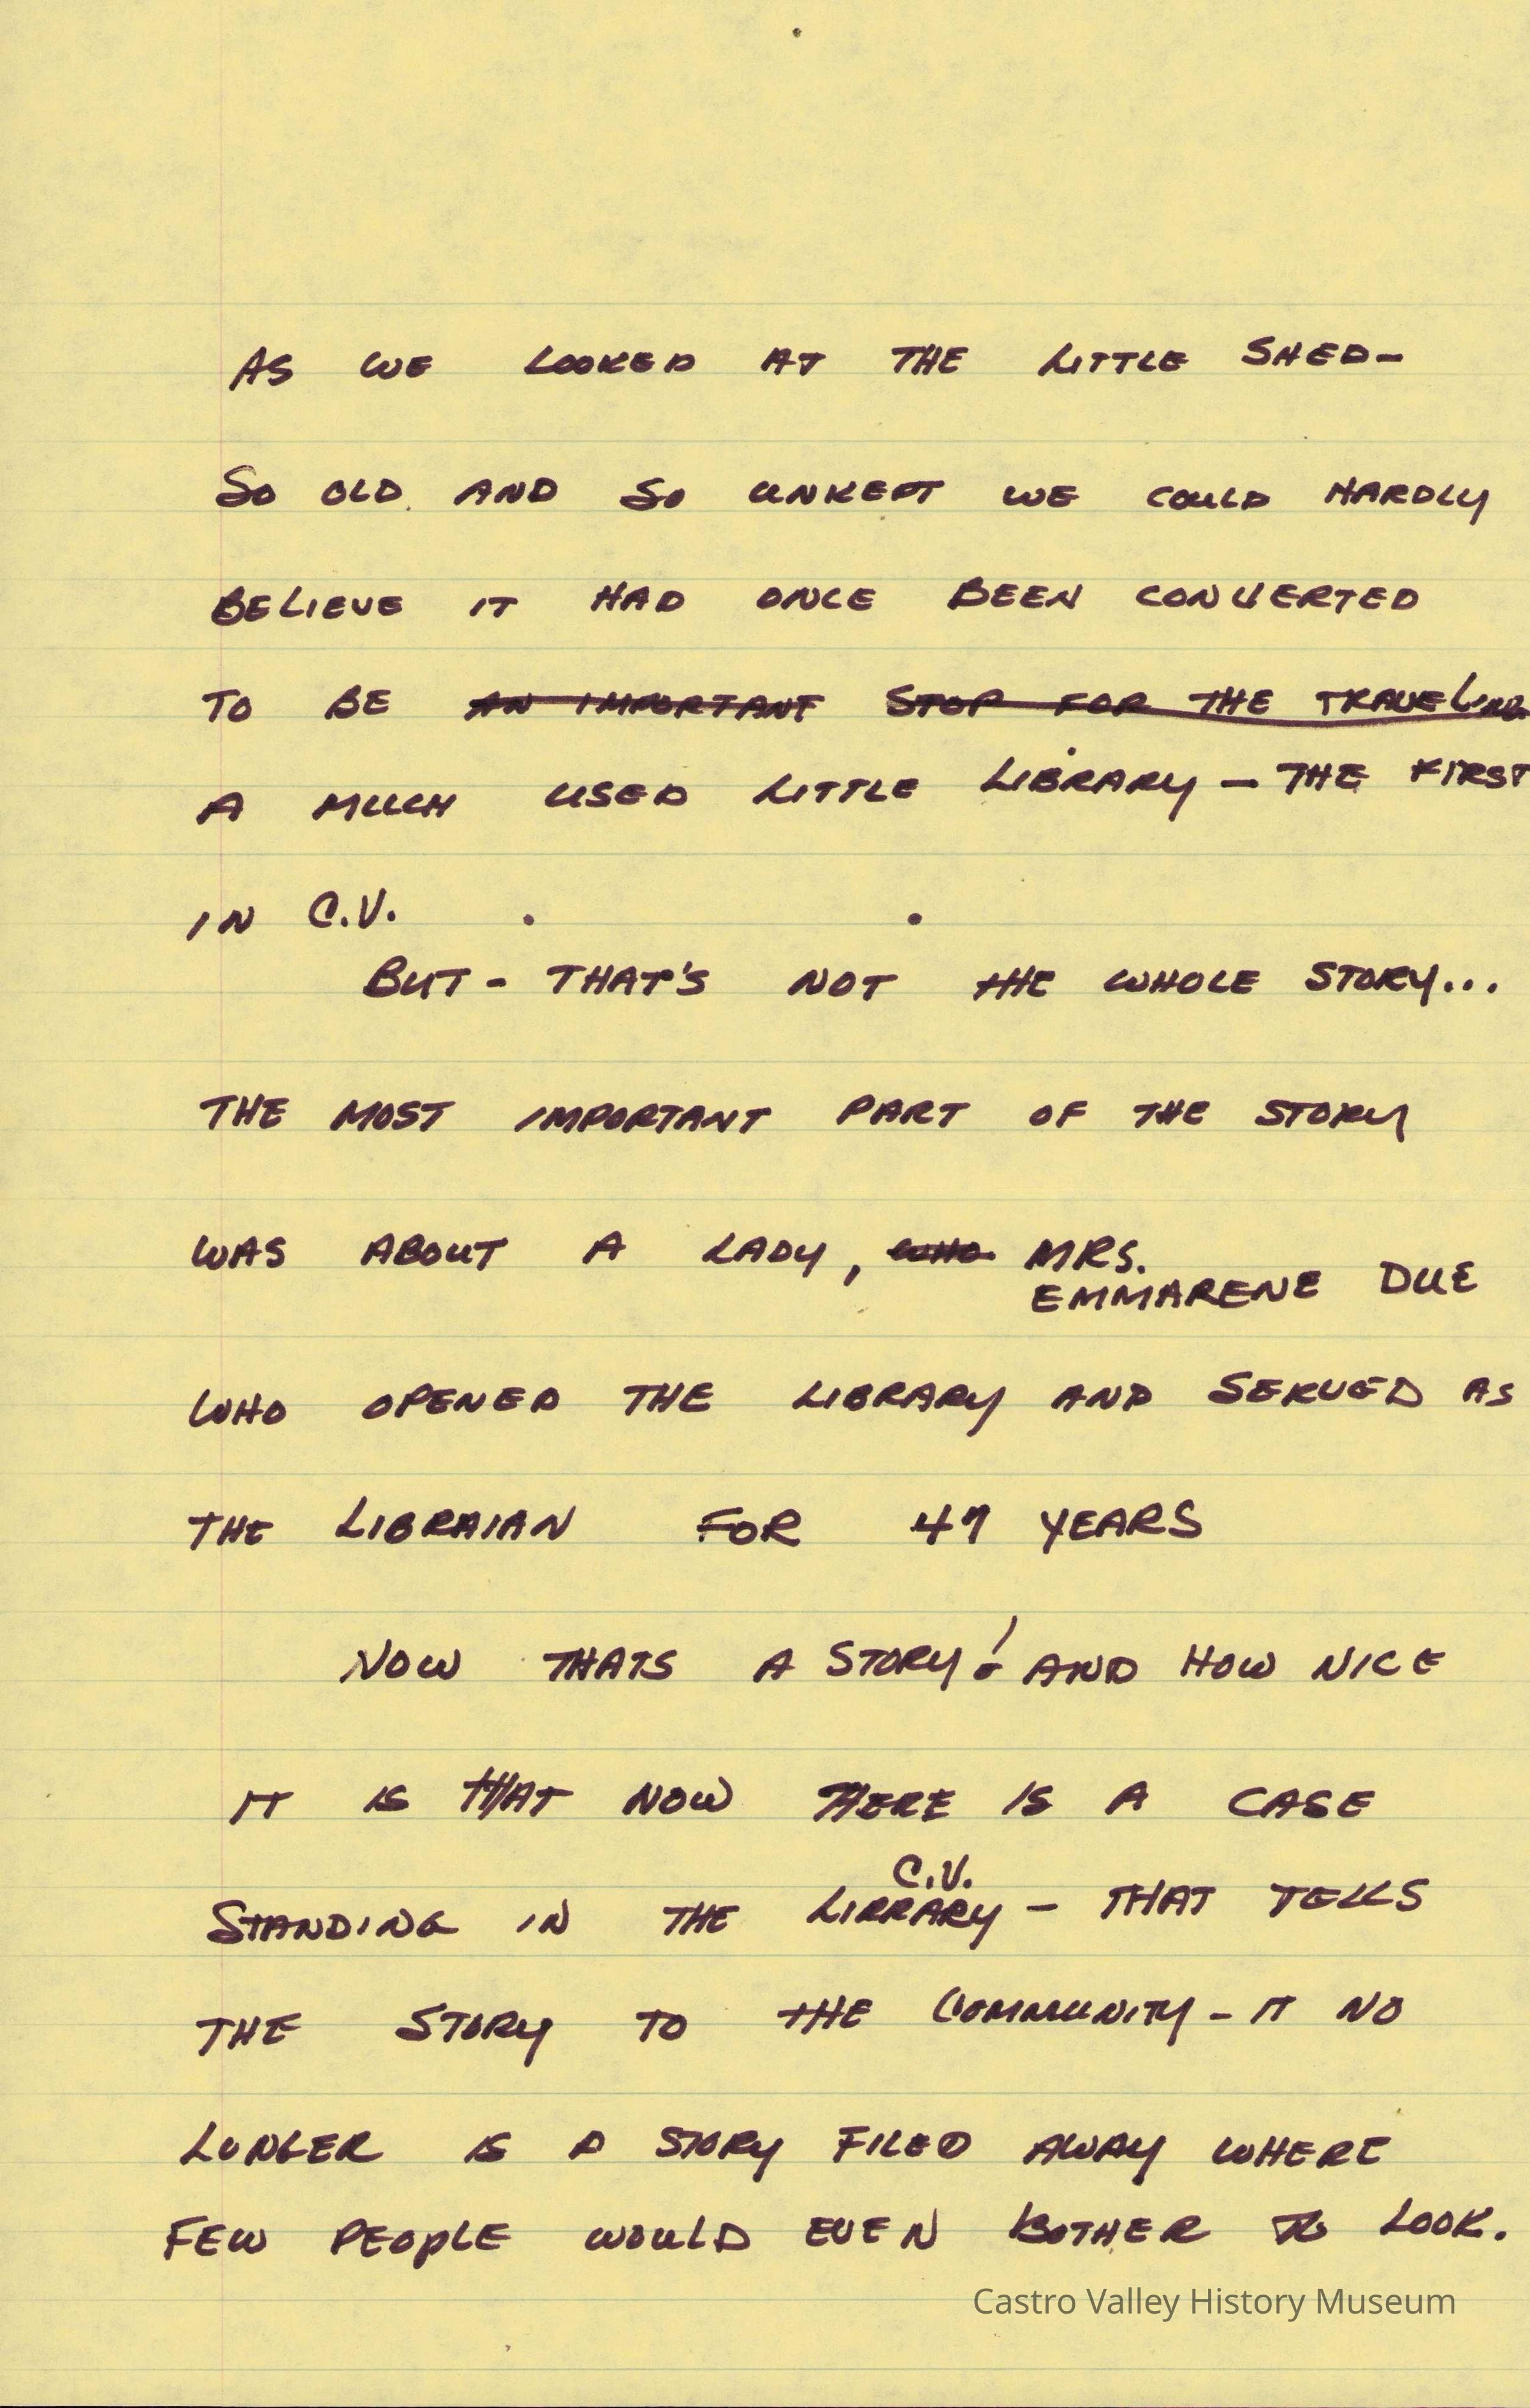 AS WE LOOKED AT THE LITTLE SHED-
SO OLD AND SO UNKEPT WE COULD HARDLY
BELIEVE IT HAD ONCE BEEN CONVERTED
TO BE AN IMPORTANT STOP FOR THE TRAVELING
A MUCH USED LITTLE LIBRARY - THE FIRST
IN C.V.
BUT - THAT'S NOT THE WHOLE STORY...
THE MOST IMPORTANT PART OF THE STORY
WAS ABOUT A LADY, WHO MRS.
EMMARENE DUE
WHO OPENED THE LIBRARY AND SERVED AS
THE LIBRAIAN FOR 47 YEARS
NOW THATS A STORY! AND HOW NICE
IT IS THAT NOW THERE IS A CASE
C.V.
STANDING IN THE LIBRARY - THAT TELLS
THE STORY TO THE COMMUNITY - IT NO
LONGER IS A STORY FILED AWAY WHERE
FEW PEOPLE WOULD EVEN BOTHER TO LOOK.
Castro Valley History Museum